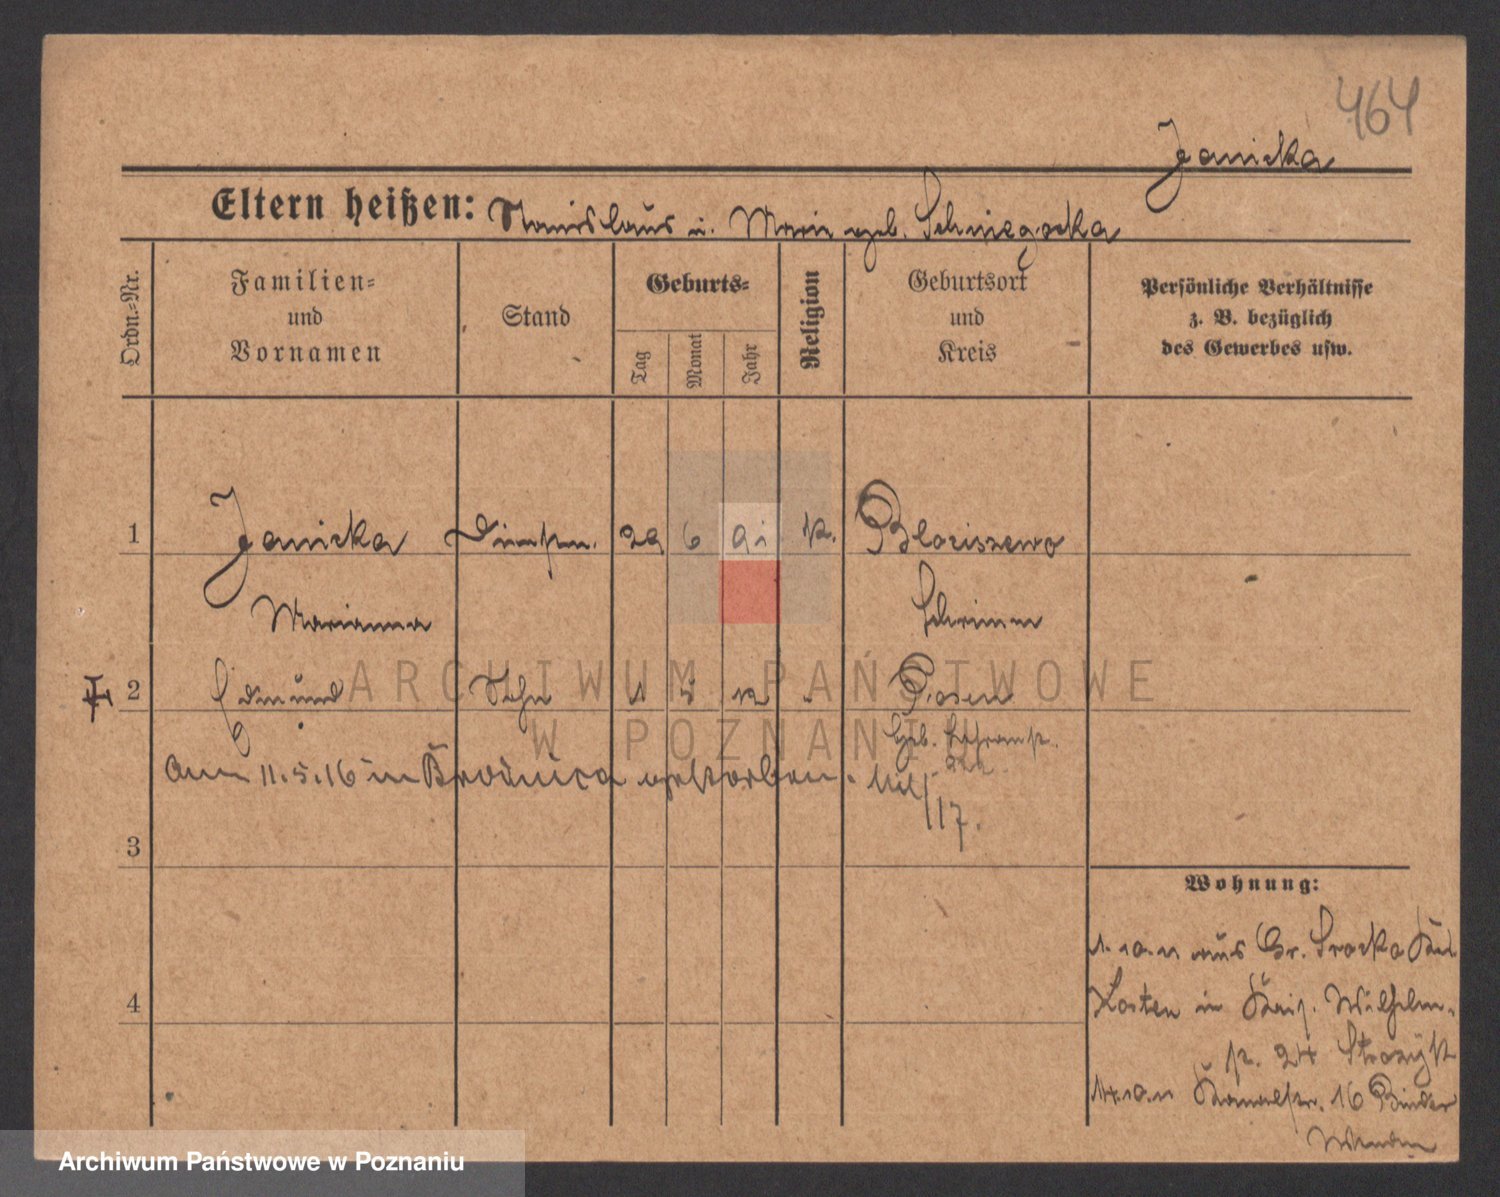 464
Janicka
Eltern heißen: Stanislaus u. Marie geb. Schmiegocka
Ordn.-Nr.
Familien-
und
Vornamen
Stand
Geburts-
Tag
Monat
Jahr
Religion
Geburtsort
und
Kreis
Persönliche Verhältnisse
z. B. bezüglich
des Gewerbes usw.
1 Janicka 29 6 91 k. Blociszewo
Marianna Schrimm
2 Edmund Sohn 1 5 12 Posen
Geb.
am 11.5.16 in Brodnica gestorben.
/17.
3
Wohnung:
1.10.11 aus Gr. Srocko
4
Kosten in Kais. Wilhelm-
str. 24
Kanalstr. 16 Binder
ARCHIWUM PAŃSTWOWE
W POZNANIU
Archiwum Państwowe w Poznaniu